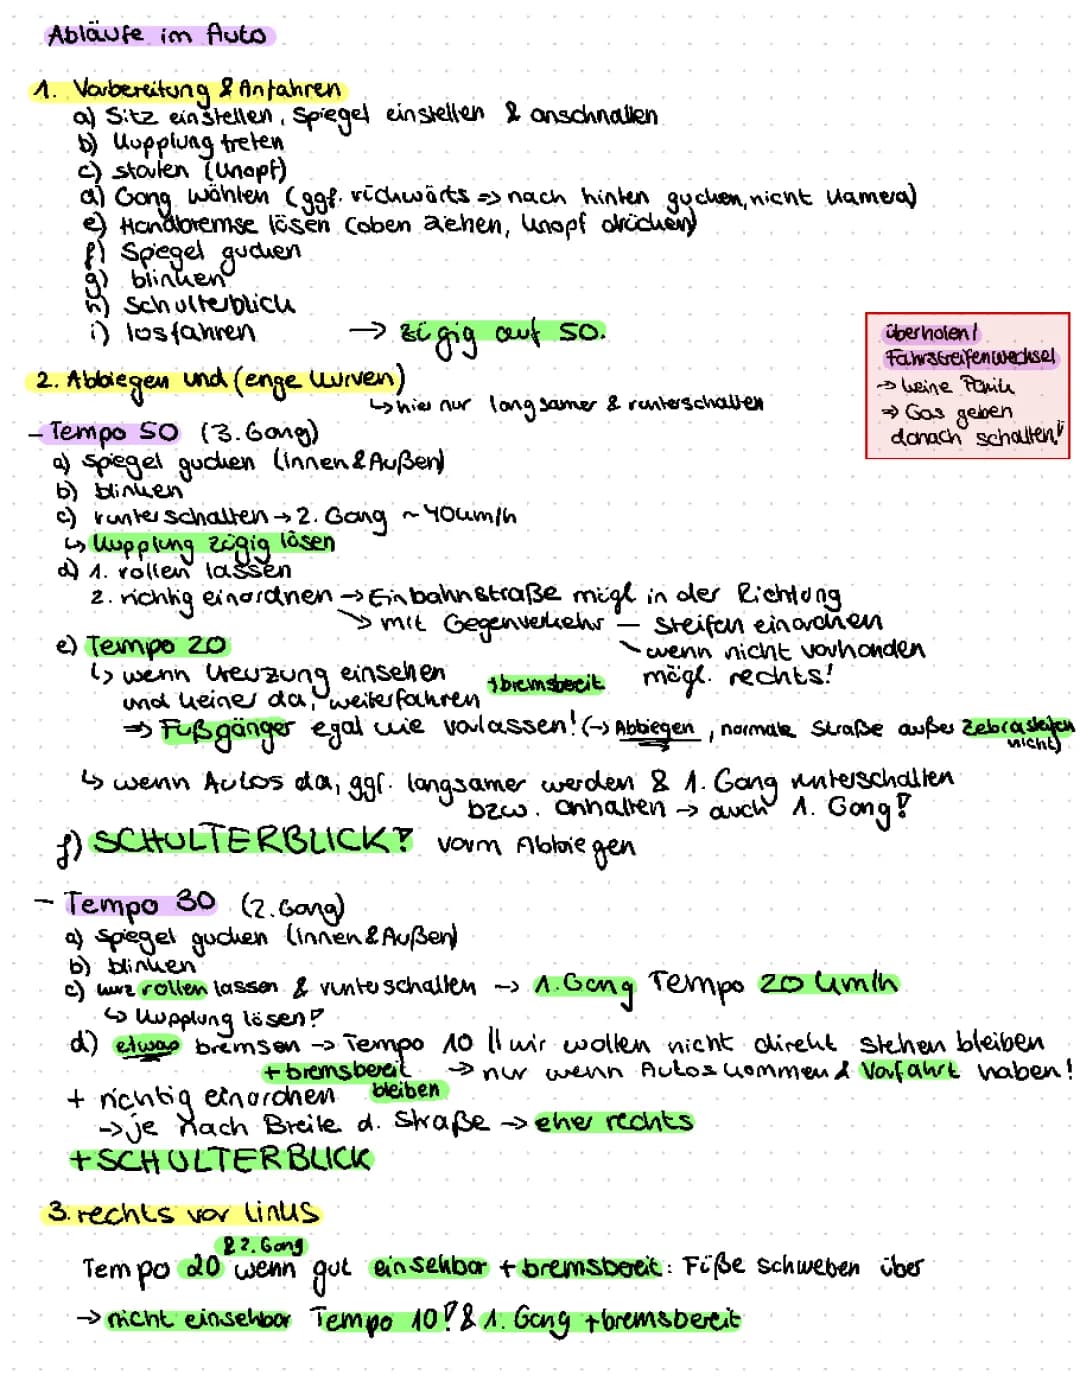 Abläufe im Auto
1. Vorbereitung & Anfahren
a) Sitz einstellen, Spiegel einstellen & anschnallen
b) Kupplung treten
c) starten (Knopf)
d) Gang wählen (ggf. rückwärts => nach hinten gucken, nicht Kamera)
e) Handbremse lösen (oben ziehen, Knopf drücken)
f) Spiegel gucken
g) blinken
h) Schulterblick
i) losfahren → zügig auf 50.
überholen/
Fahrstreifenwechsel
→ keine Panik
=> Gas geben
danach schalten!
2. Abbiegen und (enge Kurven)
↳ hier nur langsamer & runterschalten
- Tempo 50 (3. Gang)
a) Spiegel gucken (Innen & Außen)
b) blinken
c) runterschalten → 2. Gang ~ 40km/h
↳ Kupplung zügig lösen
d) 1. rollen lassen
2. richtig einordnen → Einbahnstraße mögl in der Richtung
↘ mit Gegenverkehr — Streifen einordnen
wenn nicht vorhanden
mögl. rechts!
e) Tempo 20
↳ wenn Kreuzung einsehen
und keiner da, weiterfahren +bremsbereit
=> Fußgänger egal wie vorlassen! (→ Abbiegen, normale Straße außer Zebrastreifen
nicht)
↳ wenn Autos da, ggf. langsamer werden & 1. Gang runterschalten
bzw. anhalten → auch 1. Gang!
f) SCHULTERBLICK! vorm Abbiegen
- Tempo 30 (2. Gang)
a) Spiegel gucken (Innen & Außen)
b) blinken
c) kurz rollen lassen & runterschalten → 1. Gang Tempo 20 km/h
↳ Kupplung lösen!
d) etwas bremsen → Tempo 10 || wir wollen nicht direkt stehen bleiben
+ bremsbereit bleiben → nur wenn Autos kommen & Vorfahrt haben!
+ richtig einordnen
→ je nach Breite d. Straße → eher rechts
+ SCHULTERBLICK
3. rechts vor links
& 2. Gang
Tempo 20 wenn gut einsehbar + bremsbereit: Füße schweben über
→ nicht einsehbar Tempo 10! & 1. Gang + bremsbereit